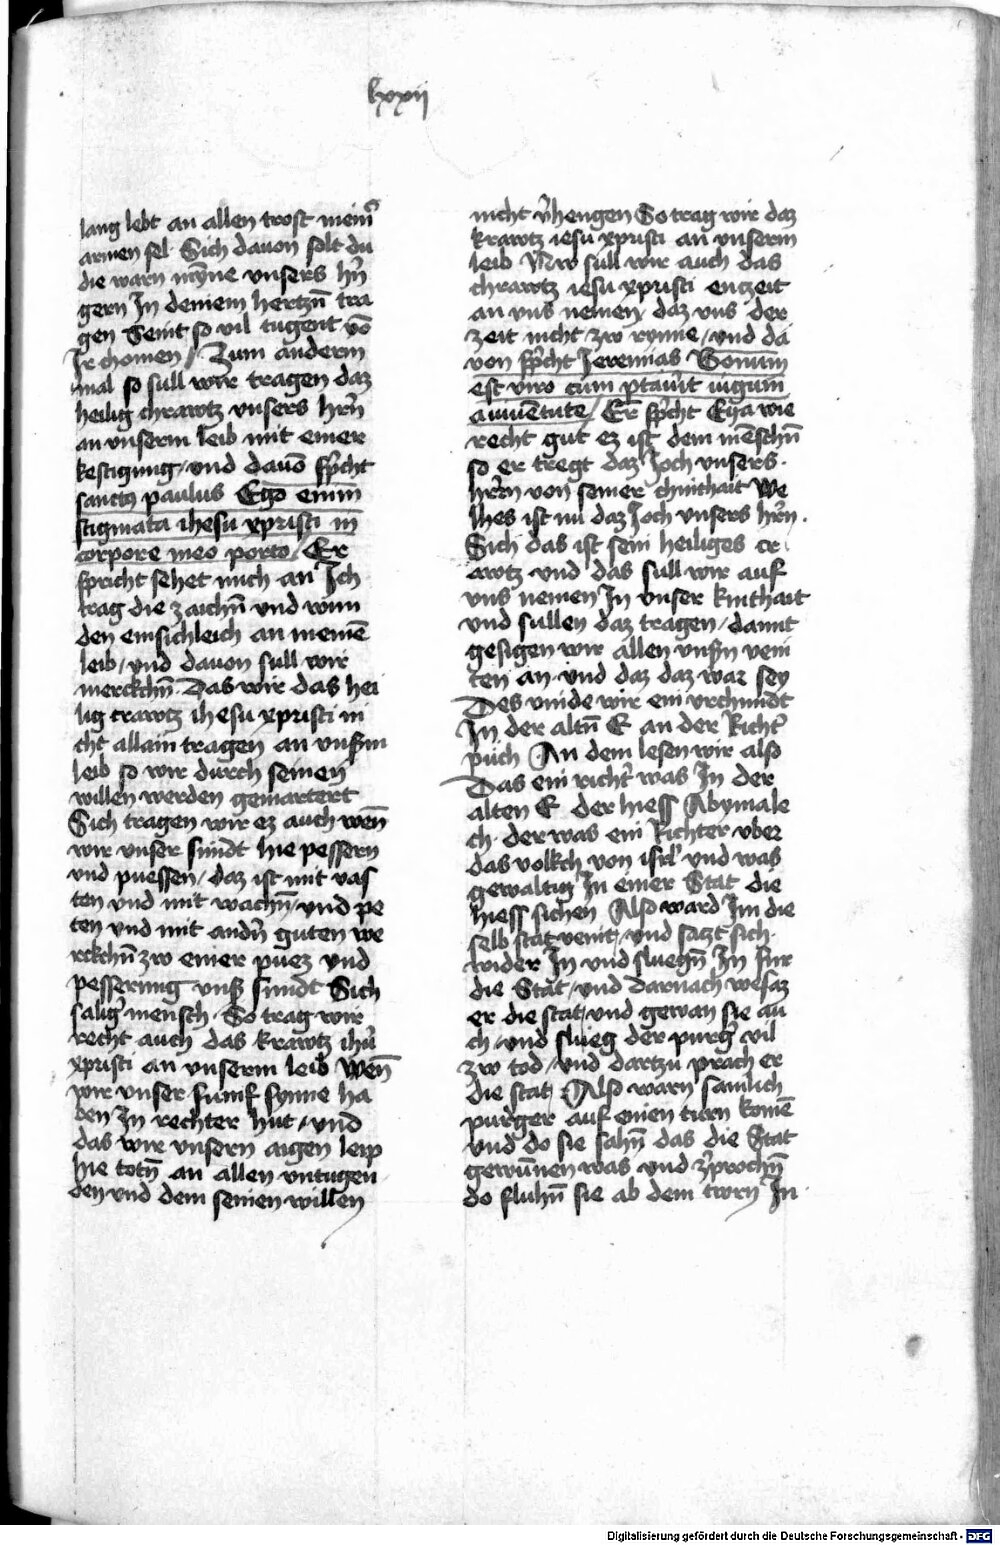 lxxii
lang lebt an allen trost meinẽ
armen sel. Sich dauon solt du
die warn mỹne vnsers hr̄n
gern In deinem hertzn̄ tra
gen Seint so vil tugent võ
Ir chomen / Zum anderm
mal so sull wir tragen daz
heilig chrawtz vnsers hrr̄n
an vnserm leib mit einer
kestigung / vnd dauõ sp̄cht
sanctus paulus Ego enim
stigmata ihesu xpristi in
corpore meo porto. Er
spricht sehet mich an Ich
trag die zaichn̄ vnd wun
den einsichleich an meinẽ
leib / vnd dauon sull wir
merckchn̄. Das wir das hei
lig crawtz ihesu xpristi ni
cht allain tragen an vnserm
leib so wir durch seinen
willen werden gemartert
Sich tragen wir ez auch wen̄
wir vnser sundt hie pessern
vnd puessen / daz ist mit vas
ten vnd mit wachn̄ / vnd pe
ten vnd mit andn̄ guten we
rckchn̄ zw einer puez vnd
pesserung vnser sundt Sich
salig mensch. So trag wir
recht auch das krawtz ihũ
xpristi an vnserm leib wen̄
wir vnser fumf synne ha
ben In rechter hut / vnd
das wir vnsern aigen leip
hie totn̄ an allen vntugen
den vnd dem seinen willen
nicht v̄hengen So trag wir daz
krawtz iesu xpristi an vnserm
leib Nw sull wir auch das
chrawtz iesu xpristi enczeit
an vns nemen daz vns der
zeit nicht zw rynne / vnd da
von sp̄cht Jeremias Bonum
est viro cum ptau̾it iugum
aiuuẽtute / Er sp̄cht Eya wie
recht gut ez ist dem mẽschn̄
so er tregt daz Joch vnsers.
hrr̄n von seiner chinthait We
lhes ist nu daz Joch vnsers hr̄n.
Sich das ist sein heiliges cr
awtz vnd das sull wir auf
vns nemen In vnser kinthait
vnd sullen daz tragen / damit
gesigen wir allen vnsern vein
ten an. vnd daz daz war sey
Des vinde wir ein vrchundt
In der altn̄ E an der Richt̾
puch An dem lesen wir also
Das ein richt̾ was In der
alten E der hiess Abymale
ch. der was ein Richter vber
das volkch von isrl̃ vnd was
gewaltig In einer Stat die
hiess sichen Also ward Im die
selb stat veint / vnd satzt sich.
wider In vnd sluegn̄ In fur
die Stat / vnd darnach wesaz
er die stat / vnd gewan sie au
ch / vnd slueg der purg̾ vil
zw tod / vnd dartzu prach er
die stat. Also warn samlich
purger auf einen turn komẽ
vnd do sie sahn̄ das die Stat
gewunnen was vnd z̾prochn̄
do fluhn̄ sie ab dem twrn In.
Digitalisierung gefördert durch die Deutsche Forschungsgemeinschaft - DFG